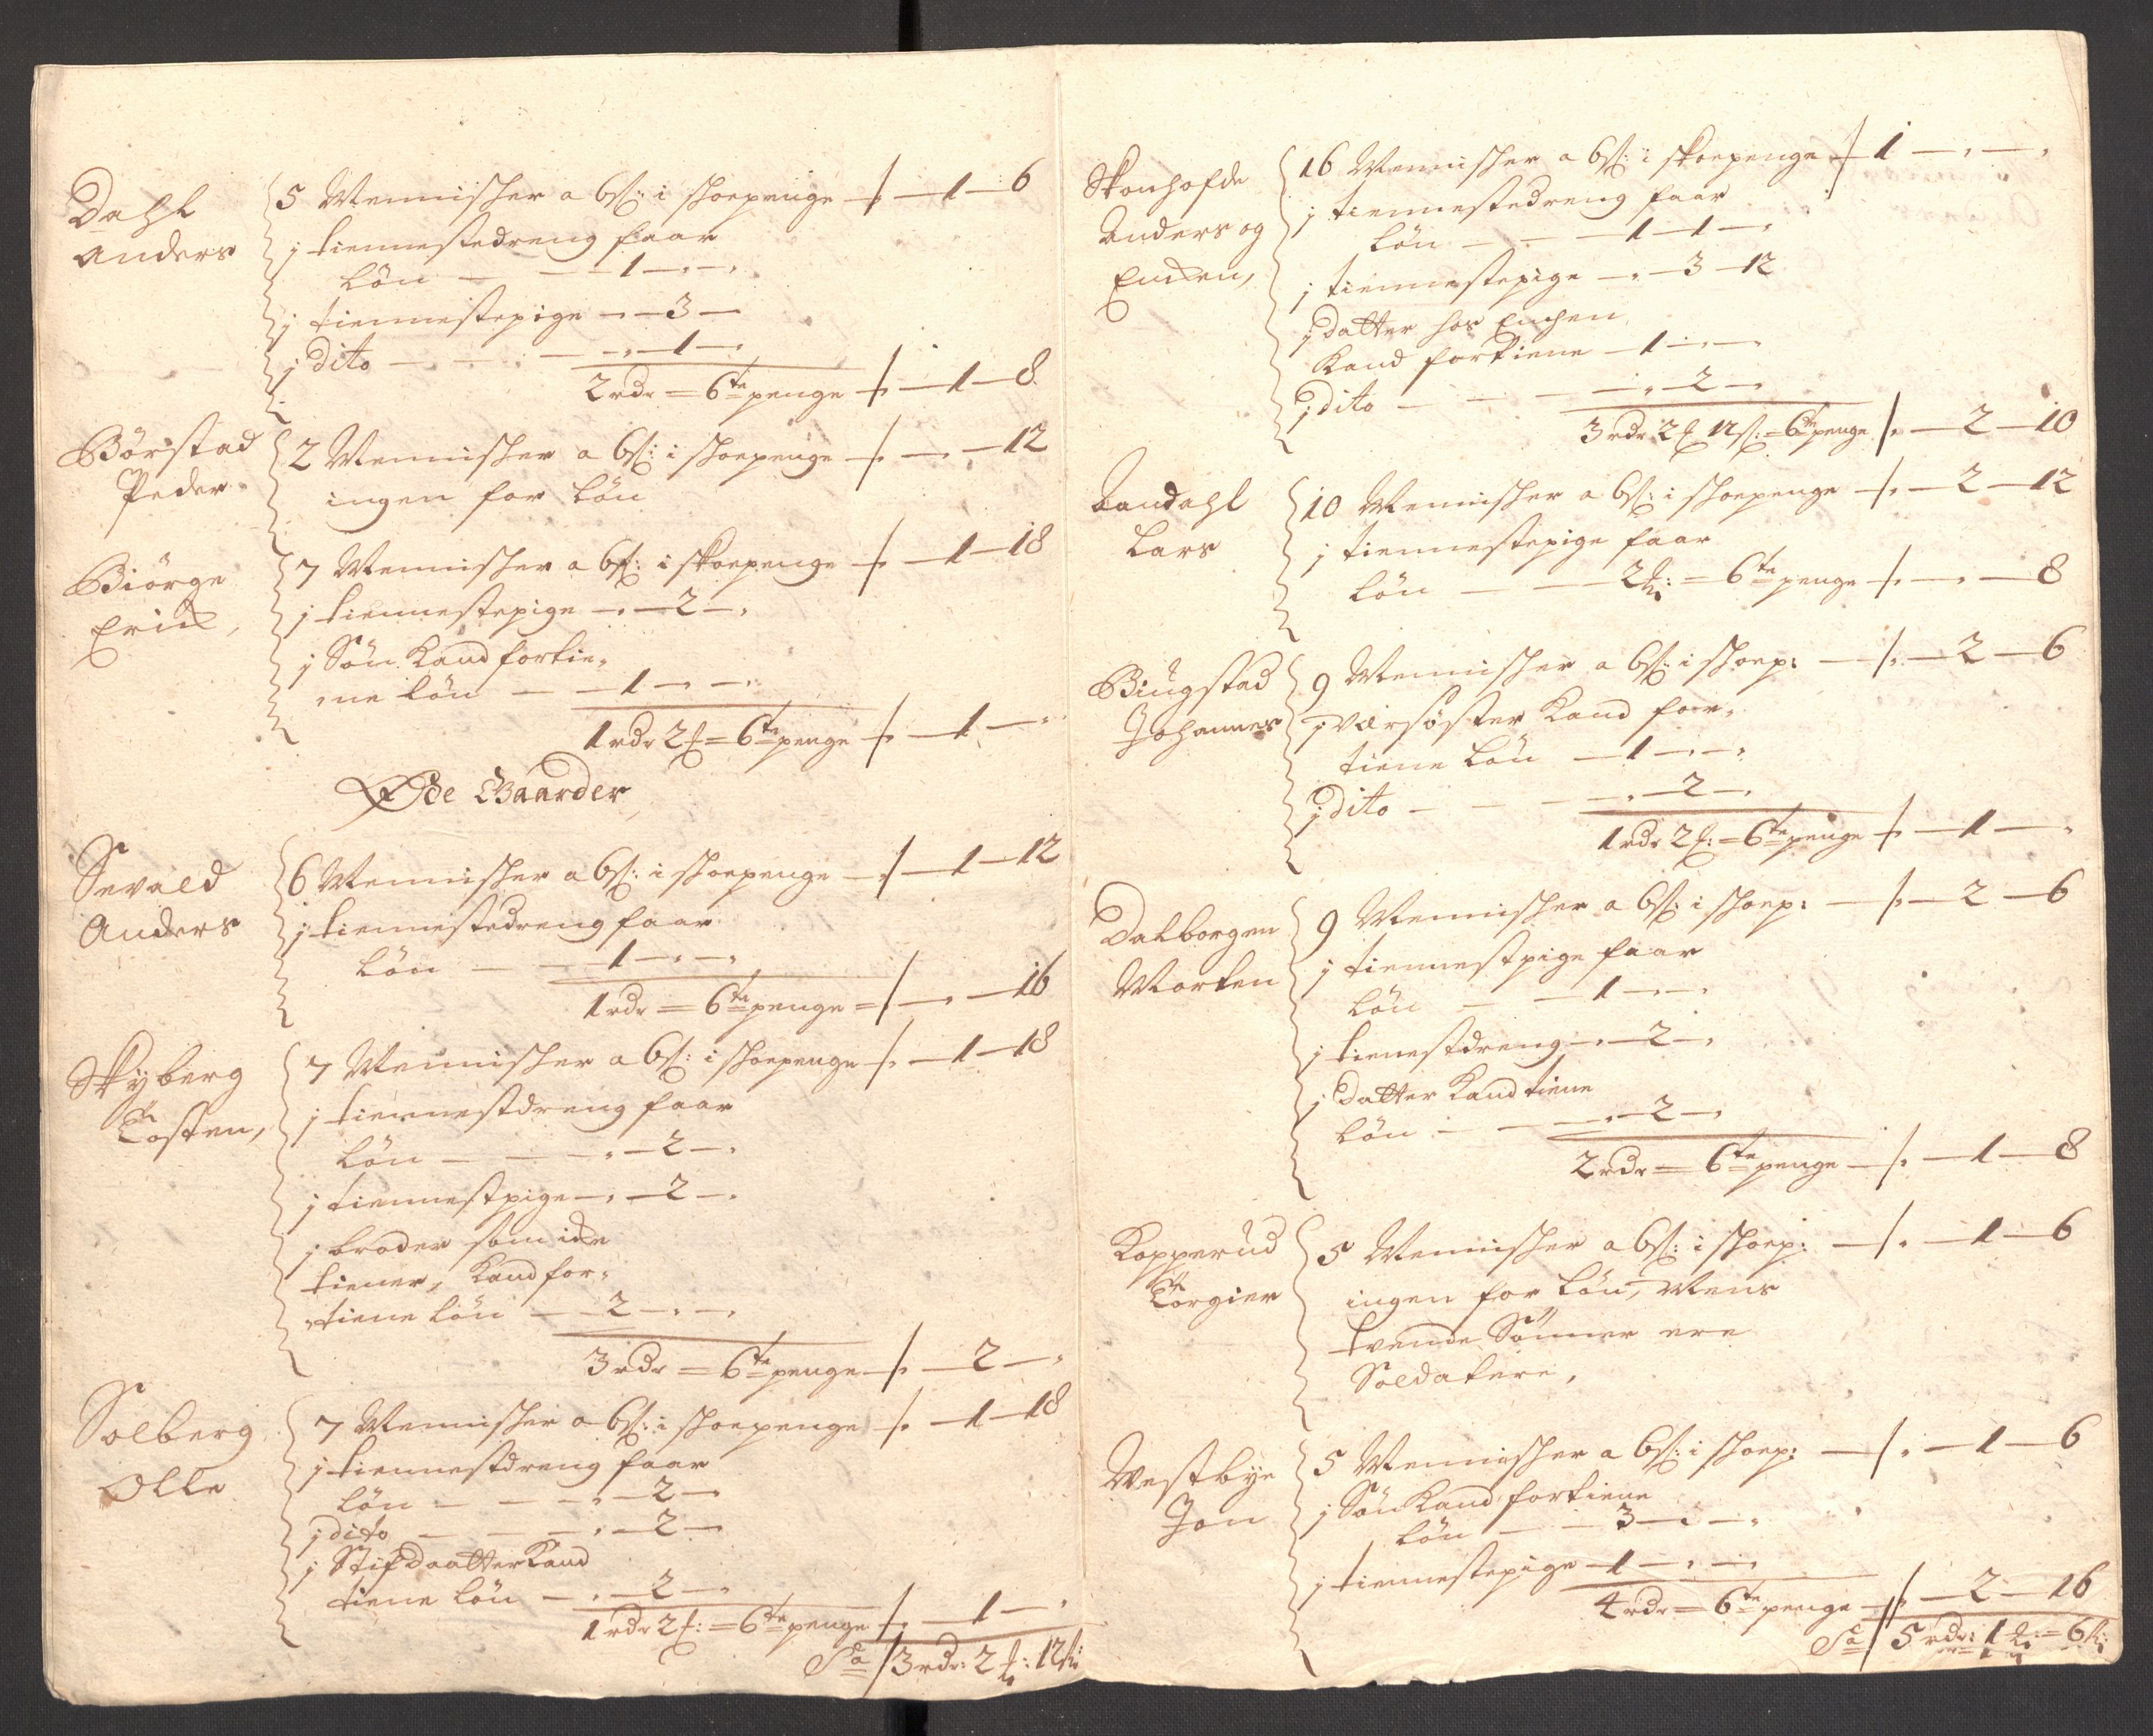 Dahl
Anders
5 Mennischer a 6 s: i skoepenge —/· —1—6
j tiennestedreng faar
løn — — —1—„—„
j tiennestepige —„—3—
j dito — — — —„—1—„
2 rdr = 6te penge —/· —1—8
Børstad
Peder
2 Mennischer a 6 s: i skoepenge —/· —„—12
ingen for løn
Biørge
Erich,
7 Mennischer a 6 s: i skoepenge —/· —1—18
j tiennestepige —„—2—„
j Søn Kand fortie„
„ne løn — —1—„—„
1 rdr 2 f = 6te penge —/· —1—„
Øde Gaarder,
Sevald
Anders
6 Mennischer a 6 s: i skoepenge —/· —1—12
j tiennestedreng faar
løn — — —1—„—„
1 rdr = 6te penge =/· —„—16
Skyberg
Tosten,
7 Mennischer a 6 s: i skoepenge —/· —1—18
j tiennestdreng faar
løn — — —„—2—„
j tiennestpige —„—2—„
j broder som iche
tiener, Kand for„
„tiene løn — —2—„—„
3 rdr = 6te penge —/· —2—„
Solberg
Olle
7 Mennischer a 6 s: i skoepenge —/· —1—18
j tiennestdreng faar
løn — — —„—2—
j dito — — —„—2—
j Stifdaatter Kand
tiene løn —„—2—„
1 rdr 2 f: = 6te penge —/· —1—„
Sa / 3 rdr: 2 f: 12 s:
Skonhofde
Anders og
Enchen,
16 Mennischer a 6 s: i skoepenge —/ 1 —„—„
j tiennestedreng faar
løn — — —1—1—„
j tiennestepige —„—3—12
j datter hos Enchen
Kand fortiene —1—„—
j dito — — — —„—2—„
3 rdr 2 f 12 s: = 6te penge /· —2—10
Aandahl
Lars
10 Mennischer a 6 s: i skoepenge —/· —2—12
j tiennestepige faar
løn — — 2 f: = 6te penge —/· —„—8
Biugstad
Johannes
9 Mennischer a 6 s: i skoep: —/· —2—6
j Værsøster Kand for„
tiene løn —1—„—„
j dito — — — —„—2—„
1 rdr 2 f: = 6te penge —/· —1—„
Dalborgen
Morten
9 Mennischer a 6 s: i skoep: —/· —2—6
j tiennestpige faar
løn — — —1—„—„
j tienestdreng —„—2—„
j datter Kand tiene
løn — — —„—2—„
2 rdr = 6te penge —/· —1—8
Kopperud
Torgier
5 Mennischer a 6 s: i skoep: —/· —1—6
ingen for løn, Mens
tvende Sønner ere
Soldatere,
Westbye
Jon
5 Mennischer a 6 s: i skoep: —/· —1—6
j Søn Kand fortiene
løn — — 3—„—„
j tiennestepige —1—„—„
4 rdr = 6te penge —/· —2—16
Sa / 5 rdr: 1 f: = 6 s: